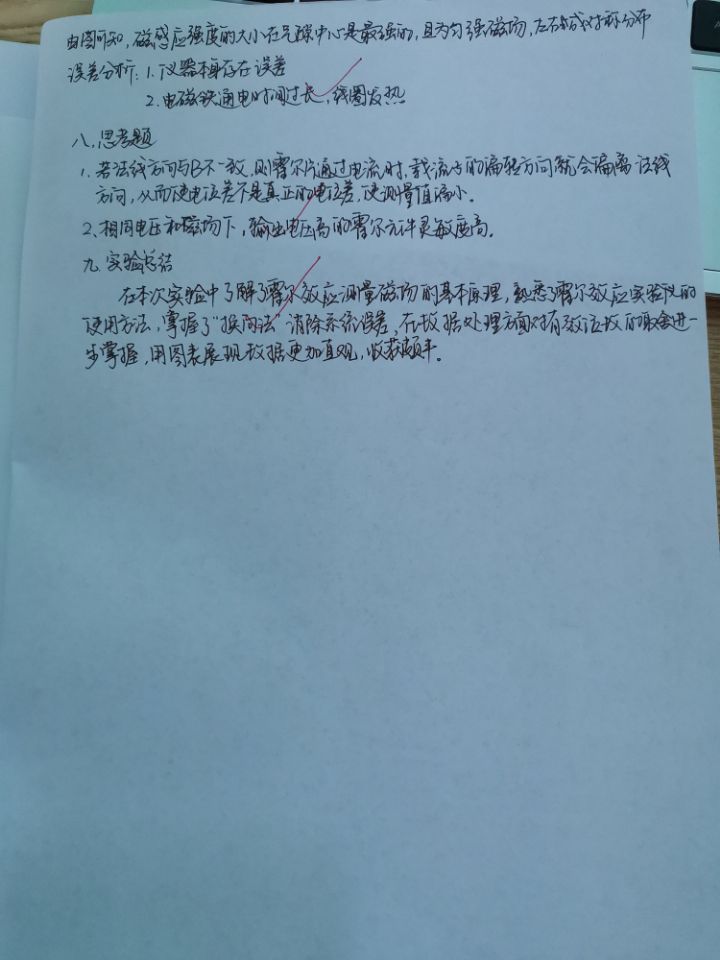 由图可知,磁感应强度的大小在气隙中心是最强的,且为匀强磁场,左右成对称分布
误差分析:1.仪器本身存在误差
2.电磁铁通电时间过长,线圈发热
八.思考题
1.若法线方向与B不一致,则霍尔片通过电流时,载流子的偏转方向就会偏离法线
方向,从而使电位差不是真正的电位差,使测量值偏小。
2.相同电压和磁场下,输出电压高的霍尔元件灵敏度高。
九.实验总结
在本次实验中了解了霍尔效应测量磁场的基本原理,熟悉了霍尔效应实验仪的
使用方法,掌握了"换向法"消除系统误差,在数据处理方面对有效位数的取舍进一
步掌握,用图表展现数据更加直观,收获颇丰。